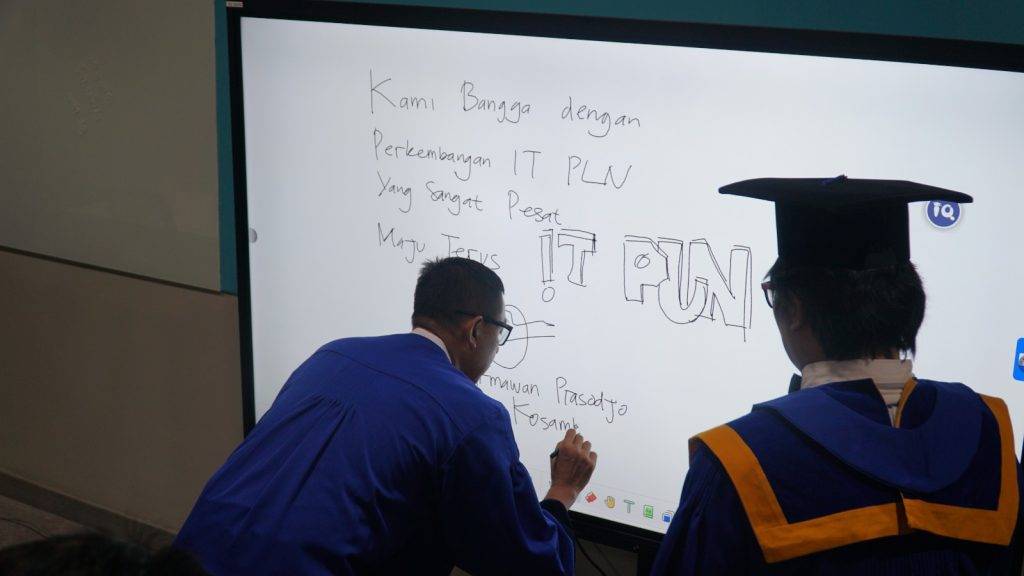 Kami Bangga dengan
Perkembangan IT PLN
Yang Sangat Pesat
Maju Terus IT PLN
Prasodjo
IQ
T